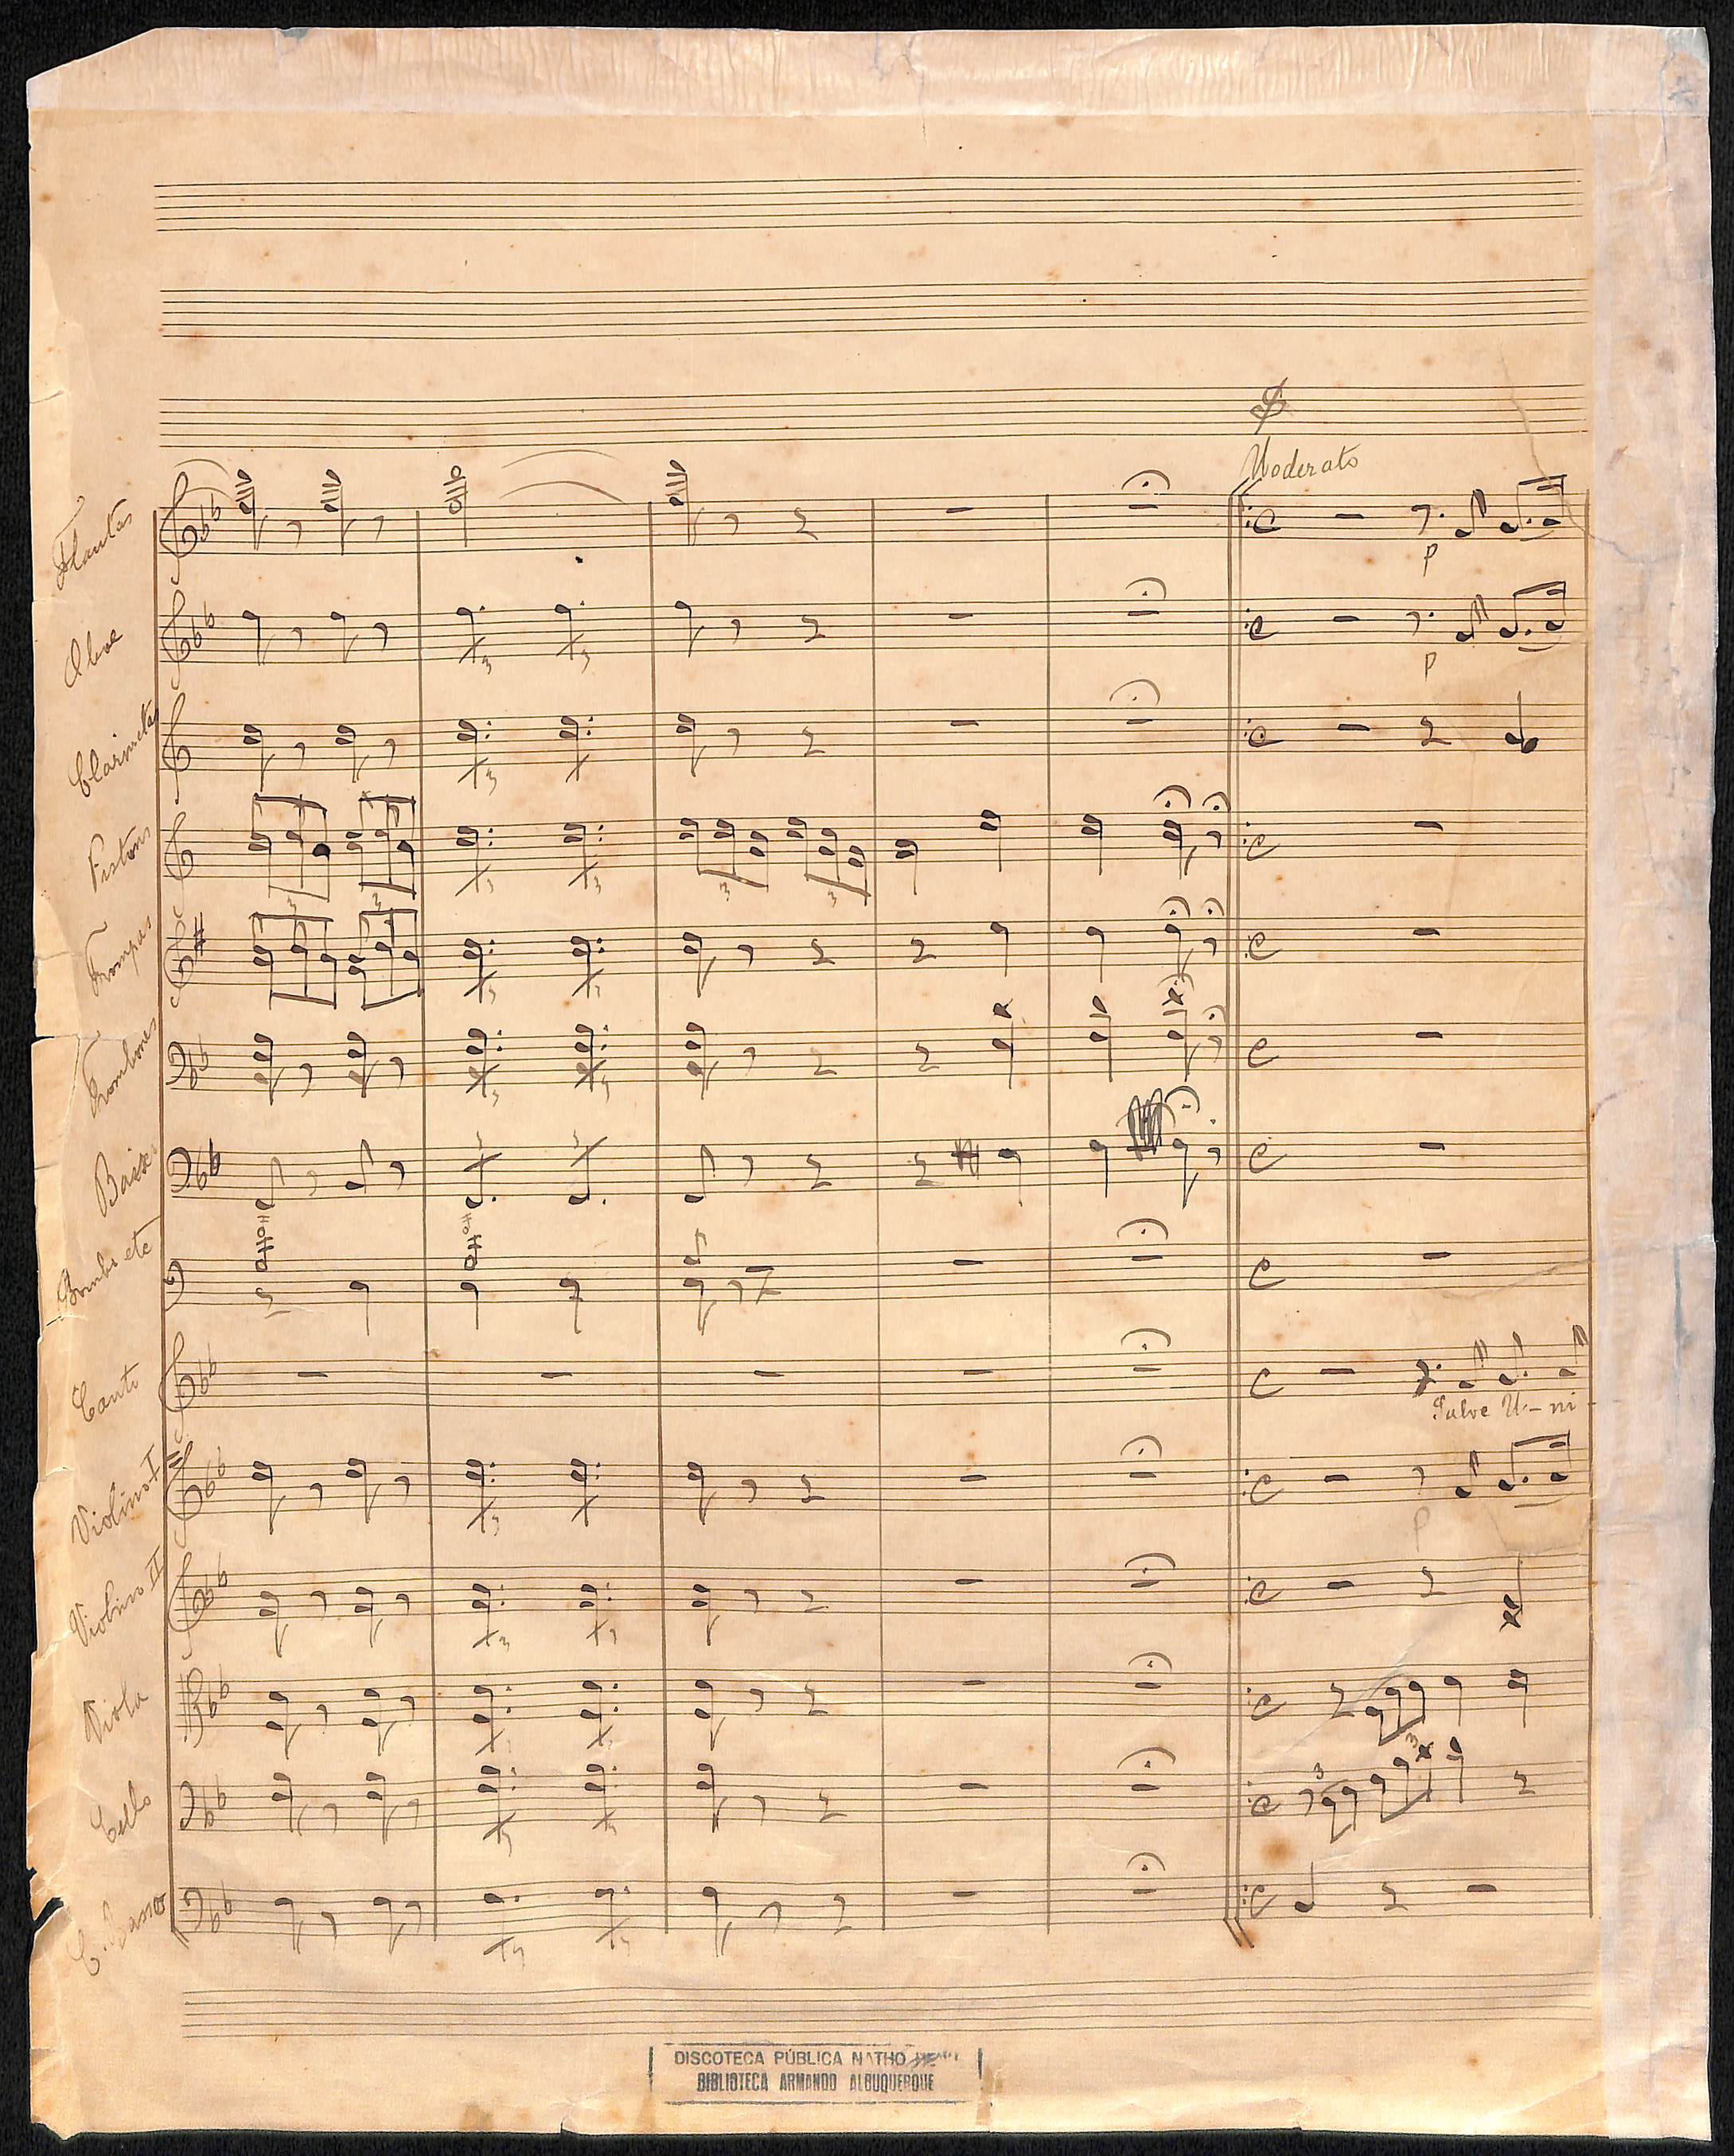 Moderato
Flautas
p
Oboe
p
Clarinetas
Pistons
3 3 3 3
Trompas
Trombones
Baixo
Bombo etc
Canto
Salve U-ni-
Violino I
p
Violino II
Viola
3
Cello
3
C. Basso
DISCOTECA PÚBLICA NATHO
BIBLIOTECA ARMANDO ALBUQUERQUE